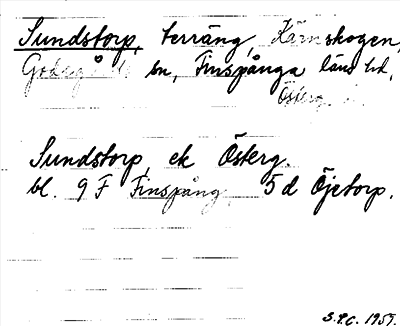 Sundstorp, terräng, Kärnskogen,
Godegårds sn, Finspånga läns hd,
Österg.
Sundstorp, ek Österg.
bl. 9 F Finspång, 5 d Öjetorp.
S.P.C. 1959.